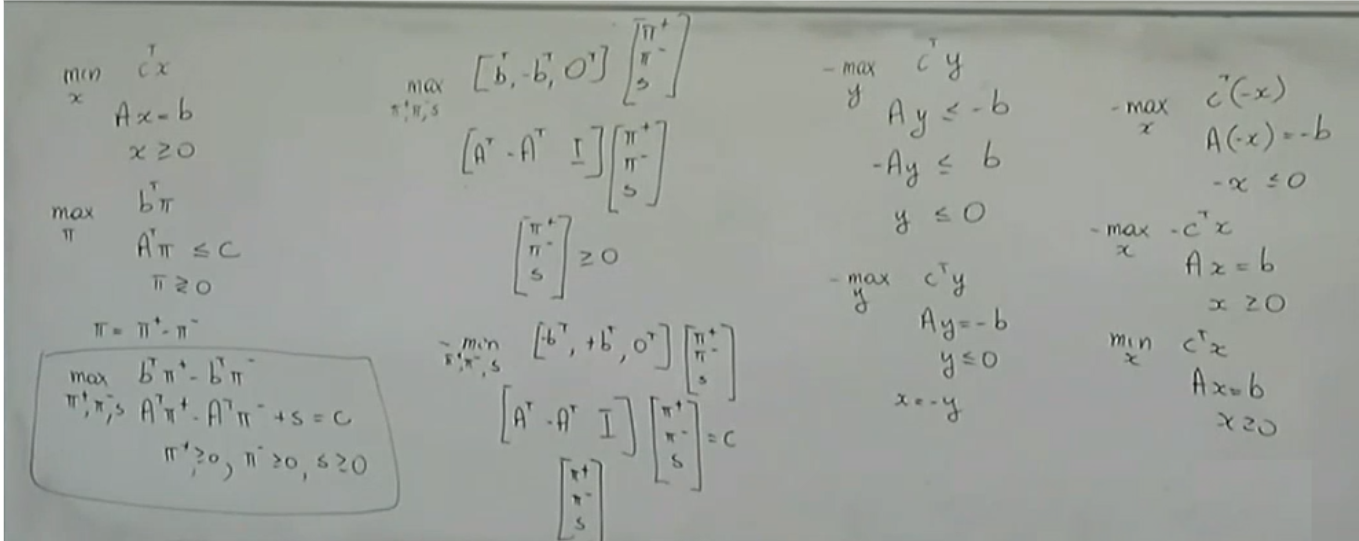 min cᵀx
x
Ax = b
x ≥ 0
max bᵀπ
π
Aᵀπ ≤ c
π ≥ 0
π = π⁺ - π⁻
max bᵀπ⁺ - bᵀπ⁻
π⁺, π⁻, s Aᵀπ⁺ - Aᵀπ⁻ + s = c
π⁺ ≥ 0, π⁻ ≥ 0, s ≥ 0
max [bᵀ, -bᵀ, 0ᵀ] [π⁺ π⁻ s]
π⁺, π⁻, s
[Aᵀ -Aᵀ I] [π⁺ π⁻ s]
[π⁺ π⁻ s] ≥ 0
- min [-bᵀ, +bᵀ, 0ᵀ] [π⁺ π⁻ s]
π⁺, π⁻, s
[Aᵀ -Aᵀ I] [π⁺ π⁻ s] = c
[π⁺ π⁻ s]
- max cᵀy
y
Ay ≤ -b
-Ay ≤ b
y ≤ 0
- max cᵀy
y
Ay = -b
y ≤ 0
x = -y
- max cᵀ(-x)
x
A(-x) = -b
-x ≤ 0
- max -cᵀx
x
Ax = b
x ≥ 0
min cᵀx
x
Ax = b
x ≥ 0